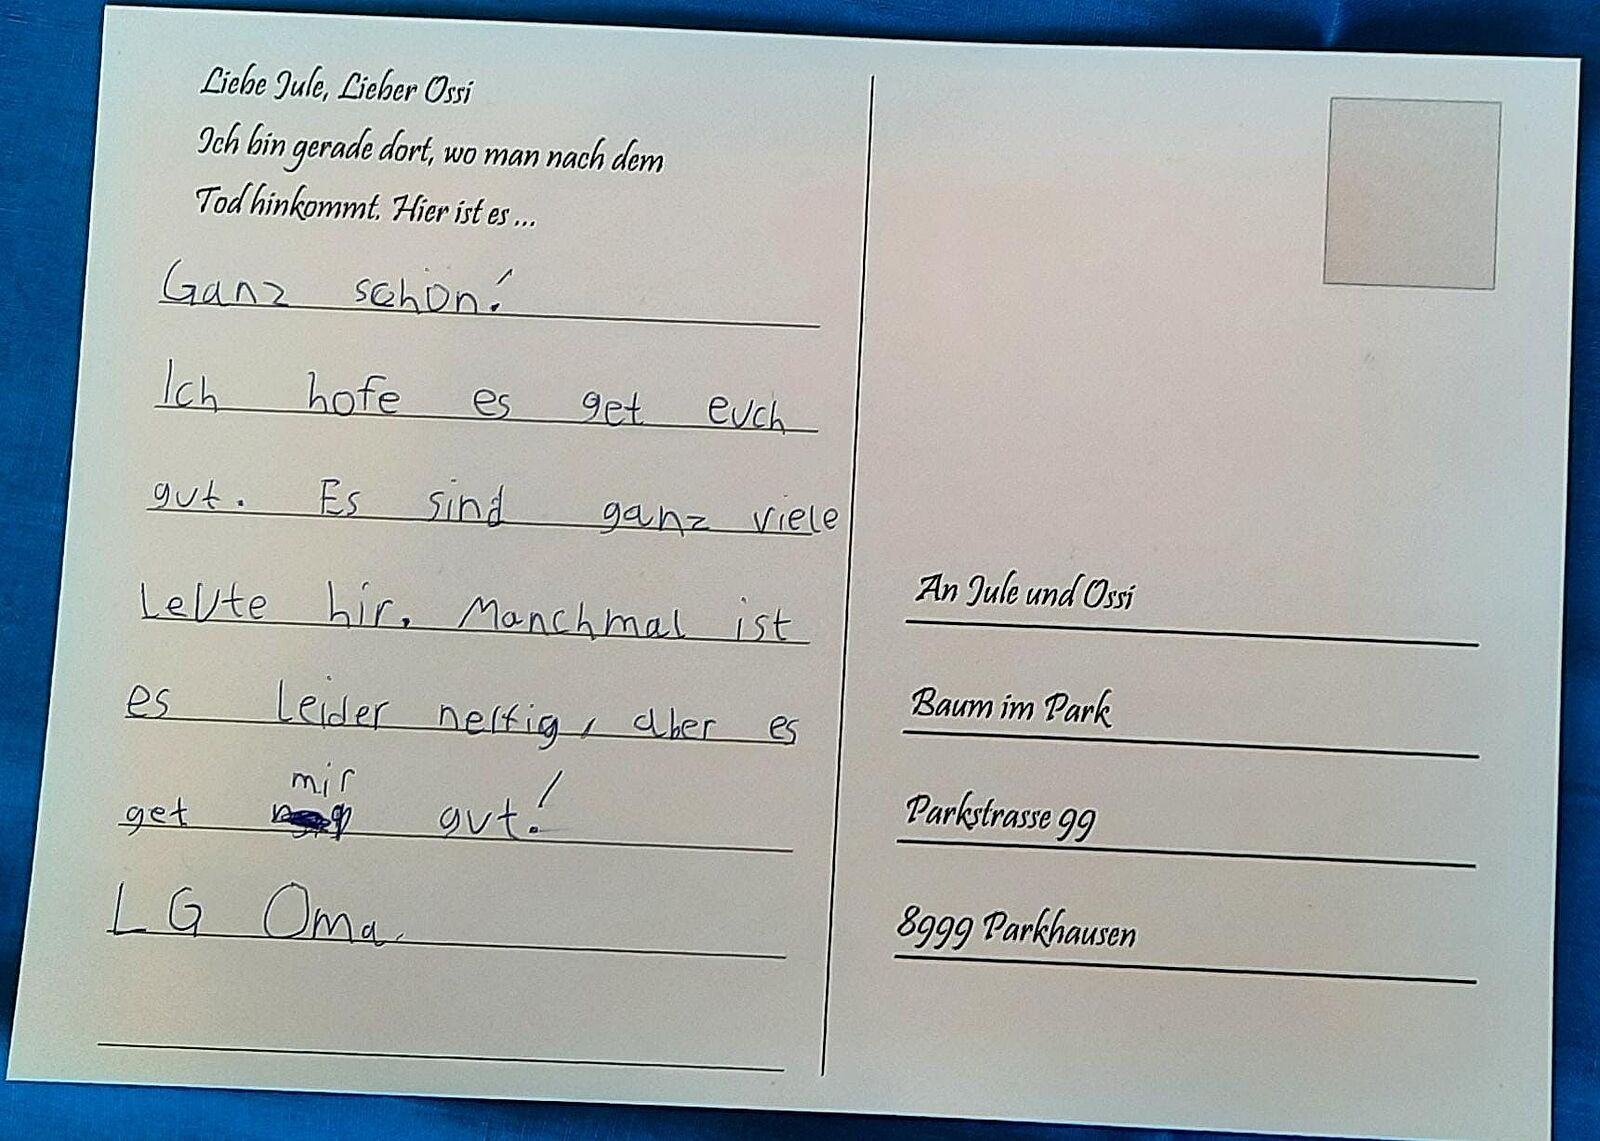 Liebe Jule, Lieber Ossi
Ich bin gerade dort, wo man nach dem
Tod hinkommt. Hier ist es ...
Ganz schön!
Ich hofe es get euch
gut. Es sind ganz viele
Leute hir. Manchmal ist
es leider neftig, aber es
mir
get gut!
LG Oma
An Jule und Ossi
Baum im Park
Parkstrasse 99
8999 Parkhausen